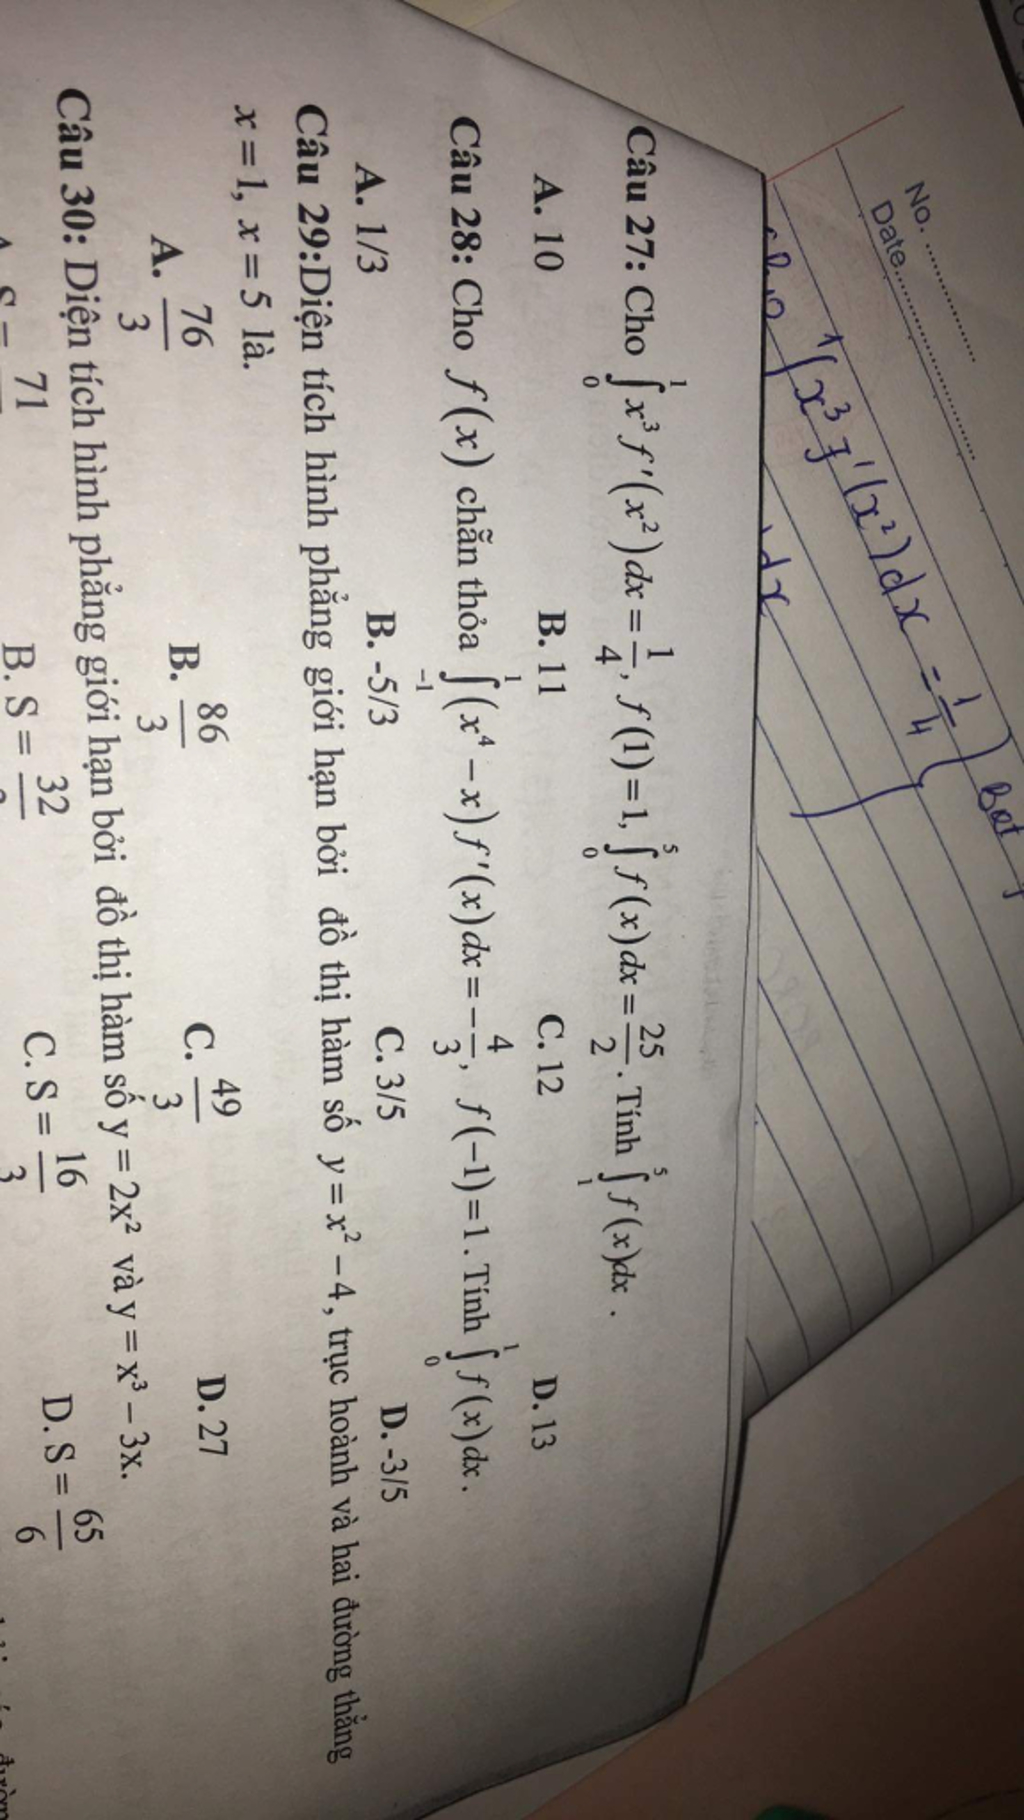 No. ....................
Date............................
1 ∫ x³ f'(x²)dx = 1/4
dx
Câu 27: Cho ∫₀¹ x³ f'(x²)dx = 1/4, f(1)=1, ∫₀⁵ f(x)dx = 25/2. Tính ∫₁⁵ f(x)dx .
A. 10 B. 11 C. 12 D. 13
Câu 28: Cho f(x) chẵn thỏa ∫₋₁¹ (x⁴ − x) f'(x)dx = −4/3, f(−1)=1. Tính ∫₀¹ f(x)dx.
A. 1/3 B. -5/3 C. 3/5 D. -3/5
Câu 29:Diện tích hình phẳng giới hạn bởi đồ thị hàm số y = x² − 4, trục hoành và hai đường thẳng
x = 1, x = 5 là.
A. 76/3 B. 86/3 C. 49/3 D. 27
Câu 30: Diện tích hình phẳng giới hạn bởi đồ thị hàm số y = 2x² và y = x³ − 3x.
71 B. S = 32 C. S = 16/3 D. S = 65/6